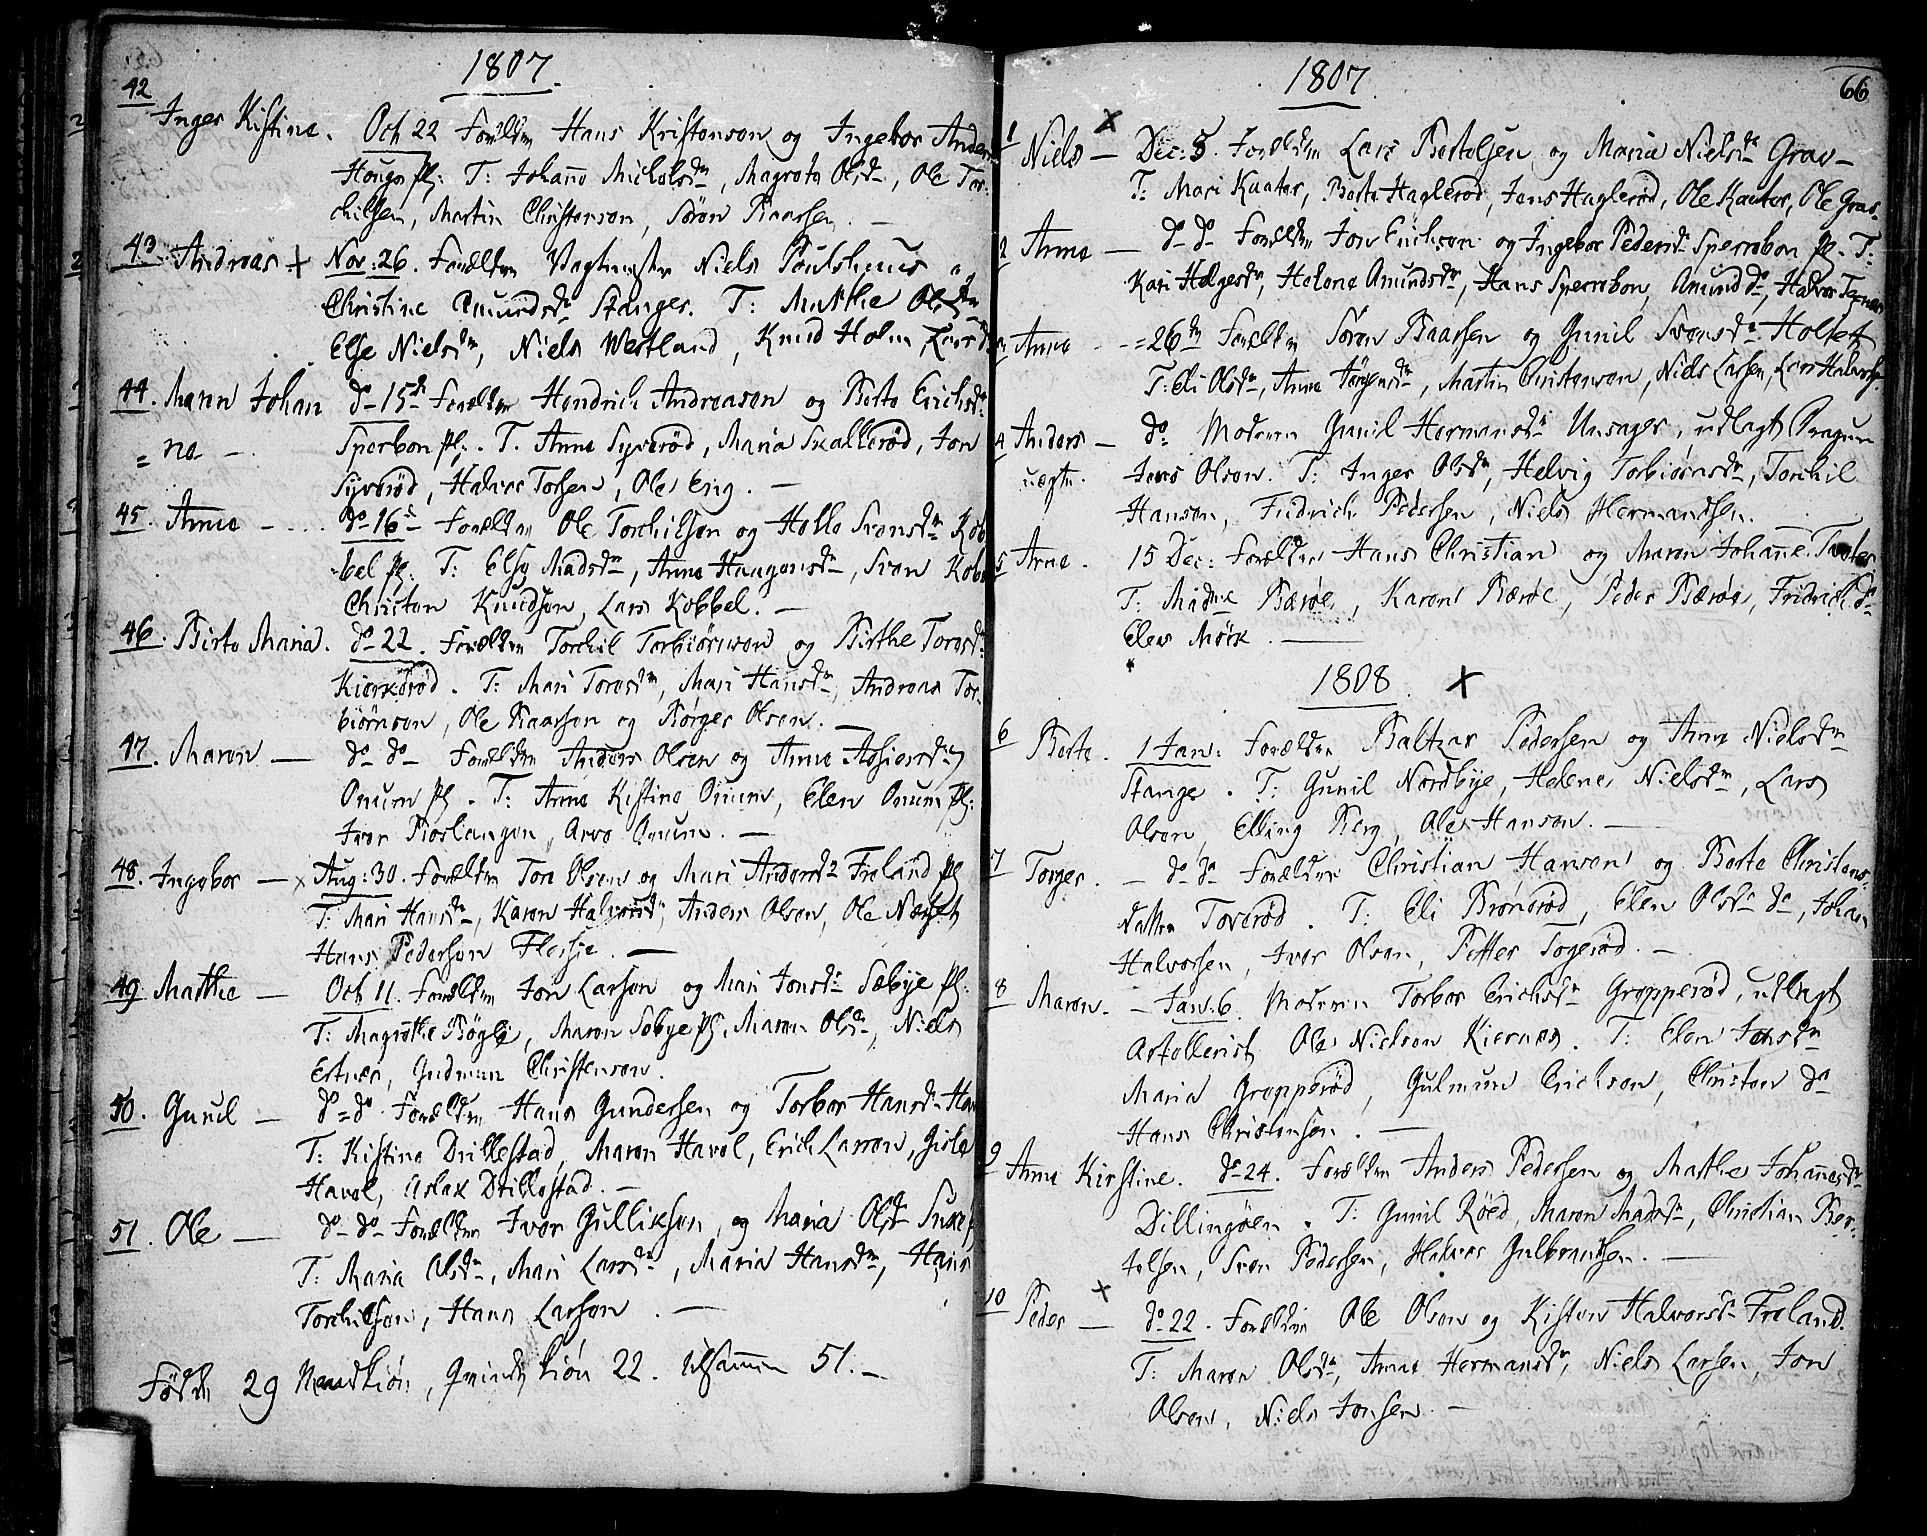 1807.
42
Inger Kistine. Oct 22 Forældre Hans Kristenson og Ingebor Anders
Houger pl: T: Johanne Michelsdn, Magrete Olsdn, Ole Tor-
chilsen, Martin Christenson, Søren Baarsen. —
43 Andreas + Nov: 26. Forældre Vagtmester Niels Poulshuus og
Christine Amundsdn Stanger. T: Marthe Olsdn
Else Nielsdn, Niels Westland, Knud Holm, Lars
44. Maren Johan d- 15d Forældre Hendrich Andreasen og Berte Erichsd:
= ne — Sperbon pl:. T. Anne Syverød, Maria Skallerød, Jon
Syverød, Halvor Tolsen, Ole Eng. —
45. Anne - - - . do 16 Forældre Ole Torchilsen og Helle Svensdn Kob
bel pl: T: Elsy Madsdn, Anne Haagensdn, Sven Kob
Christen Knudsen, Lars Kobbel. —
46. Birte Maria. do- 22. Forældre Torchil Torbiørnson og Birthe Toresd:
Kierkerød. T: Mari Toresdn, Mari Hansdn, Andreas Tor-
biørnson, Ole Baarsen og Børger Olsen. —
47. Maren — do do Forældre Anders Olsen og Anne Asgiersdn
Onum pl. T: Anne Kistine Onum, Elen Onum pl:
Iver Roslangen, Arve Onum. —
48. Ingebor — x Aug: 30. Forældre Tore Olsen og Mari Andersd: Freland pl
T: Mari Hansdn, Karen Halvorsd: Anders Olsen, Ole Næset
Hans Pedersen Flesje. —
49. Marthe — Oct 11. Forældre Jon Larsen og Mari Jonsd: Sæbye pl:
T: Magrethe Bøgli, Maren Sebye pl. Maren Olsdn, Niels
Ertnes, Gudmun Christenson.
50. Gunil — do = do. Forældre Hans Gundersen og Torbor Hansd: Hav
T: Kistine Drillestad, Maren Havel, Erich Larson, Gisle
Havel, Aslak Drillestad. —
51. Ole — do- do Forældre Iver Gullikson, og Maria Olsdn
T: Maria Olsdn, Mari Larsdn, Maria Hansdn, Hans
Torchilson, Hans Larson. —
Fødde 29 Mandkiøn, Qvindekiøn 22. tilsammen 51. —
66
1807.
1 Niels — x Dec: 8. Forældre Lars Bertelsen og Maria Nielsdr Grav —
T: Mari Kaater, Berte Haglerød, Jens Haglerød, Ole Kaater, Ole Grav.
2 Anne — do do Forældre Jon Erichson og Ingebor Pedersd: Sperrebon pl. T:
Kari Helgesdn, Helene Amundsdn, Hans Sperrebon, Amund do, Halvor
3 Anne - - = 26dn Forældre Søren Baarsen og Gunil Svensdn Holtet
T: Eli Olsdn, Anne Jørgensdn, Martin Christenson, Niels Larsen, Lars Halvorsen
4 Anders — do Moderen Gunil Hermansdn Unsager, udlagt Dragun
uægte. Jens Olson. T: Inger Olsdn, Helvig Torbiørnsdn, Torchil
Hanson, Fridrich Pedersen, Niels Hermandsen. —
5 Arne. 15 Dec: Forældre Hans Christian og Maren Johanne
T: Madme Bærøe, Karen Bærøe, Peder Bærøe, Fridrich do
Elen Mørk. —
1808. x
6 Berte. 1 Jan: Forældre Baltzar Pedersen og Anne Nielsdn
Stanger. T: Gunil Nordbye, Helene Nielsdn, Lars
Olson, Elling Berg, Ole Hanson. —
7 Torger. — do do Forældre Christian Hansen og Berte Christens-
datter Toverød. T: Eli Brønerød, Elen Olsdn do, Johan
Halvorsen, Iver Olson, Petter Togerød. —
8 Maren. — Jan: 6. Moderen Torbor Erichsdn Gropperød, udlagt
Artollerist Ole Nielson Kiernes. T: Elen Jensdn
Maria Gropperød, Gulmun Erickson, Christen do
Hans Christensen. —
9 Anne Kirstine. do 24. Forældre Anders Pedersen og Marthe Johannesdr
Dillingøen. T: Gunil Røed, Maren Madsdn, Christian Ber-
telsen, Sven Pedersen, Halvor Gulbrandsen. —
10 Peder — x do 22. Forældre Ole Olson og Kisten Halvorsdn Freland.
T: Maren Olsdn, Anne Hermansdn, Niels Larsen, Jon
Olsen, Niels Jonsen. —